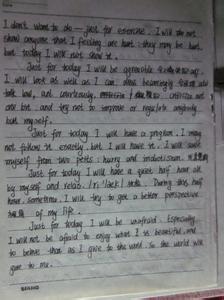 I don't want to do — just for exercise. I will not
show anyone that I feeling are hurt: they may be hurt,
but today I will not show it.
Just for today I will be agreeable
I will look as well as I can dress becomingly
talk low, act courteously, criticize not
one bit. and try not to improve or regulate anybody
but myself.
Just for today I will have a program. I may
not follow it exactly. but I will have it. I will save
myself from two pests: hurry and indecision.
Just for today I will have a quiet half hour all
by myself and relax. During this half
hour. sometime. I will try to get a better perspective
of my life.
Just for today I will be unafraid. Especially
I will not be afraid to enjoy what is beautiful, and
to believe that as I give to the world. so the world will
give to me.